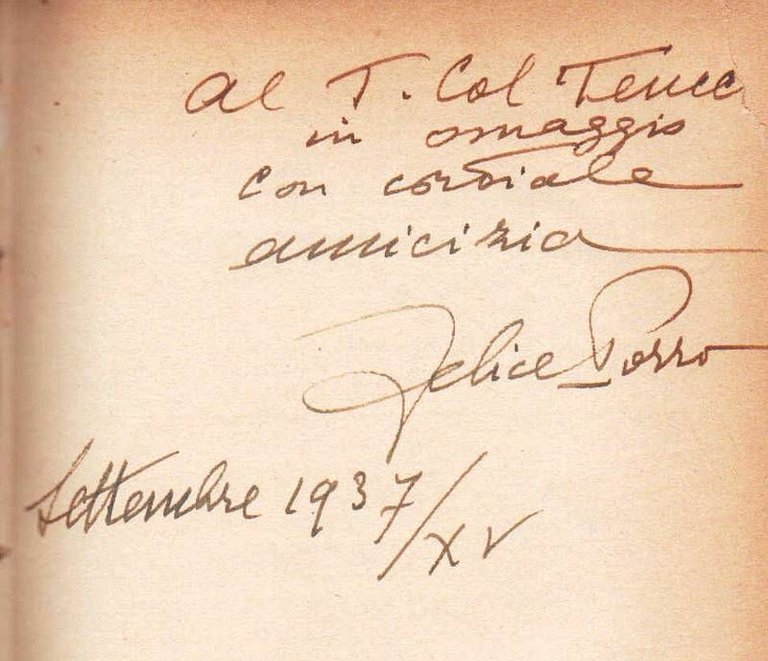 al T. Col Teucc
in omaggio
con cordiale
amicizia
Felice Porro
Settembre 1937/XV